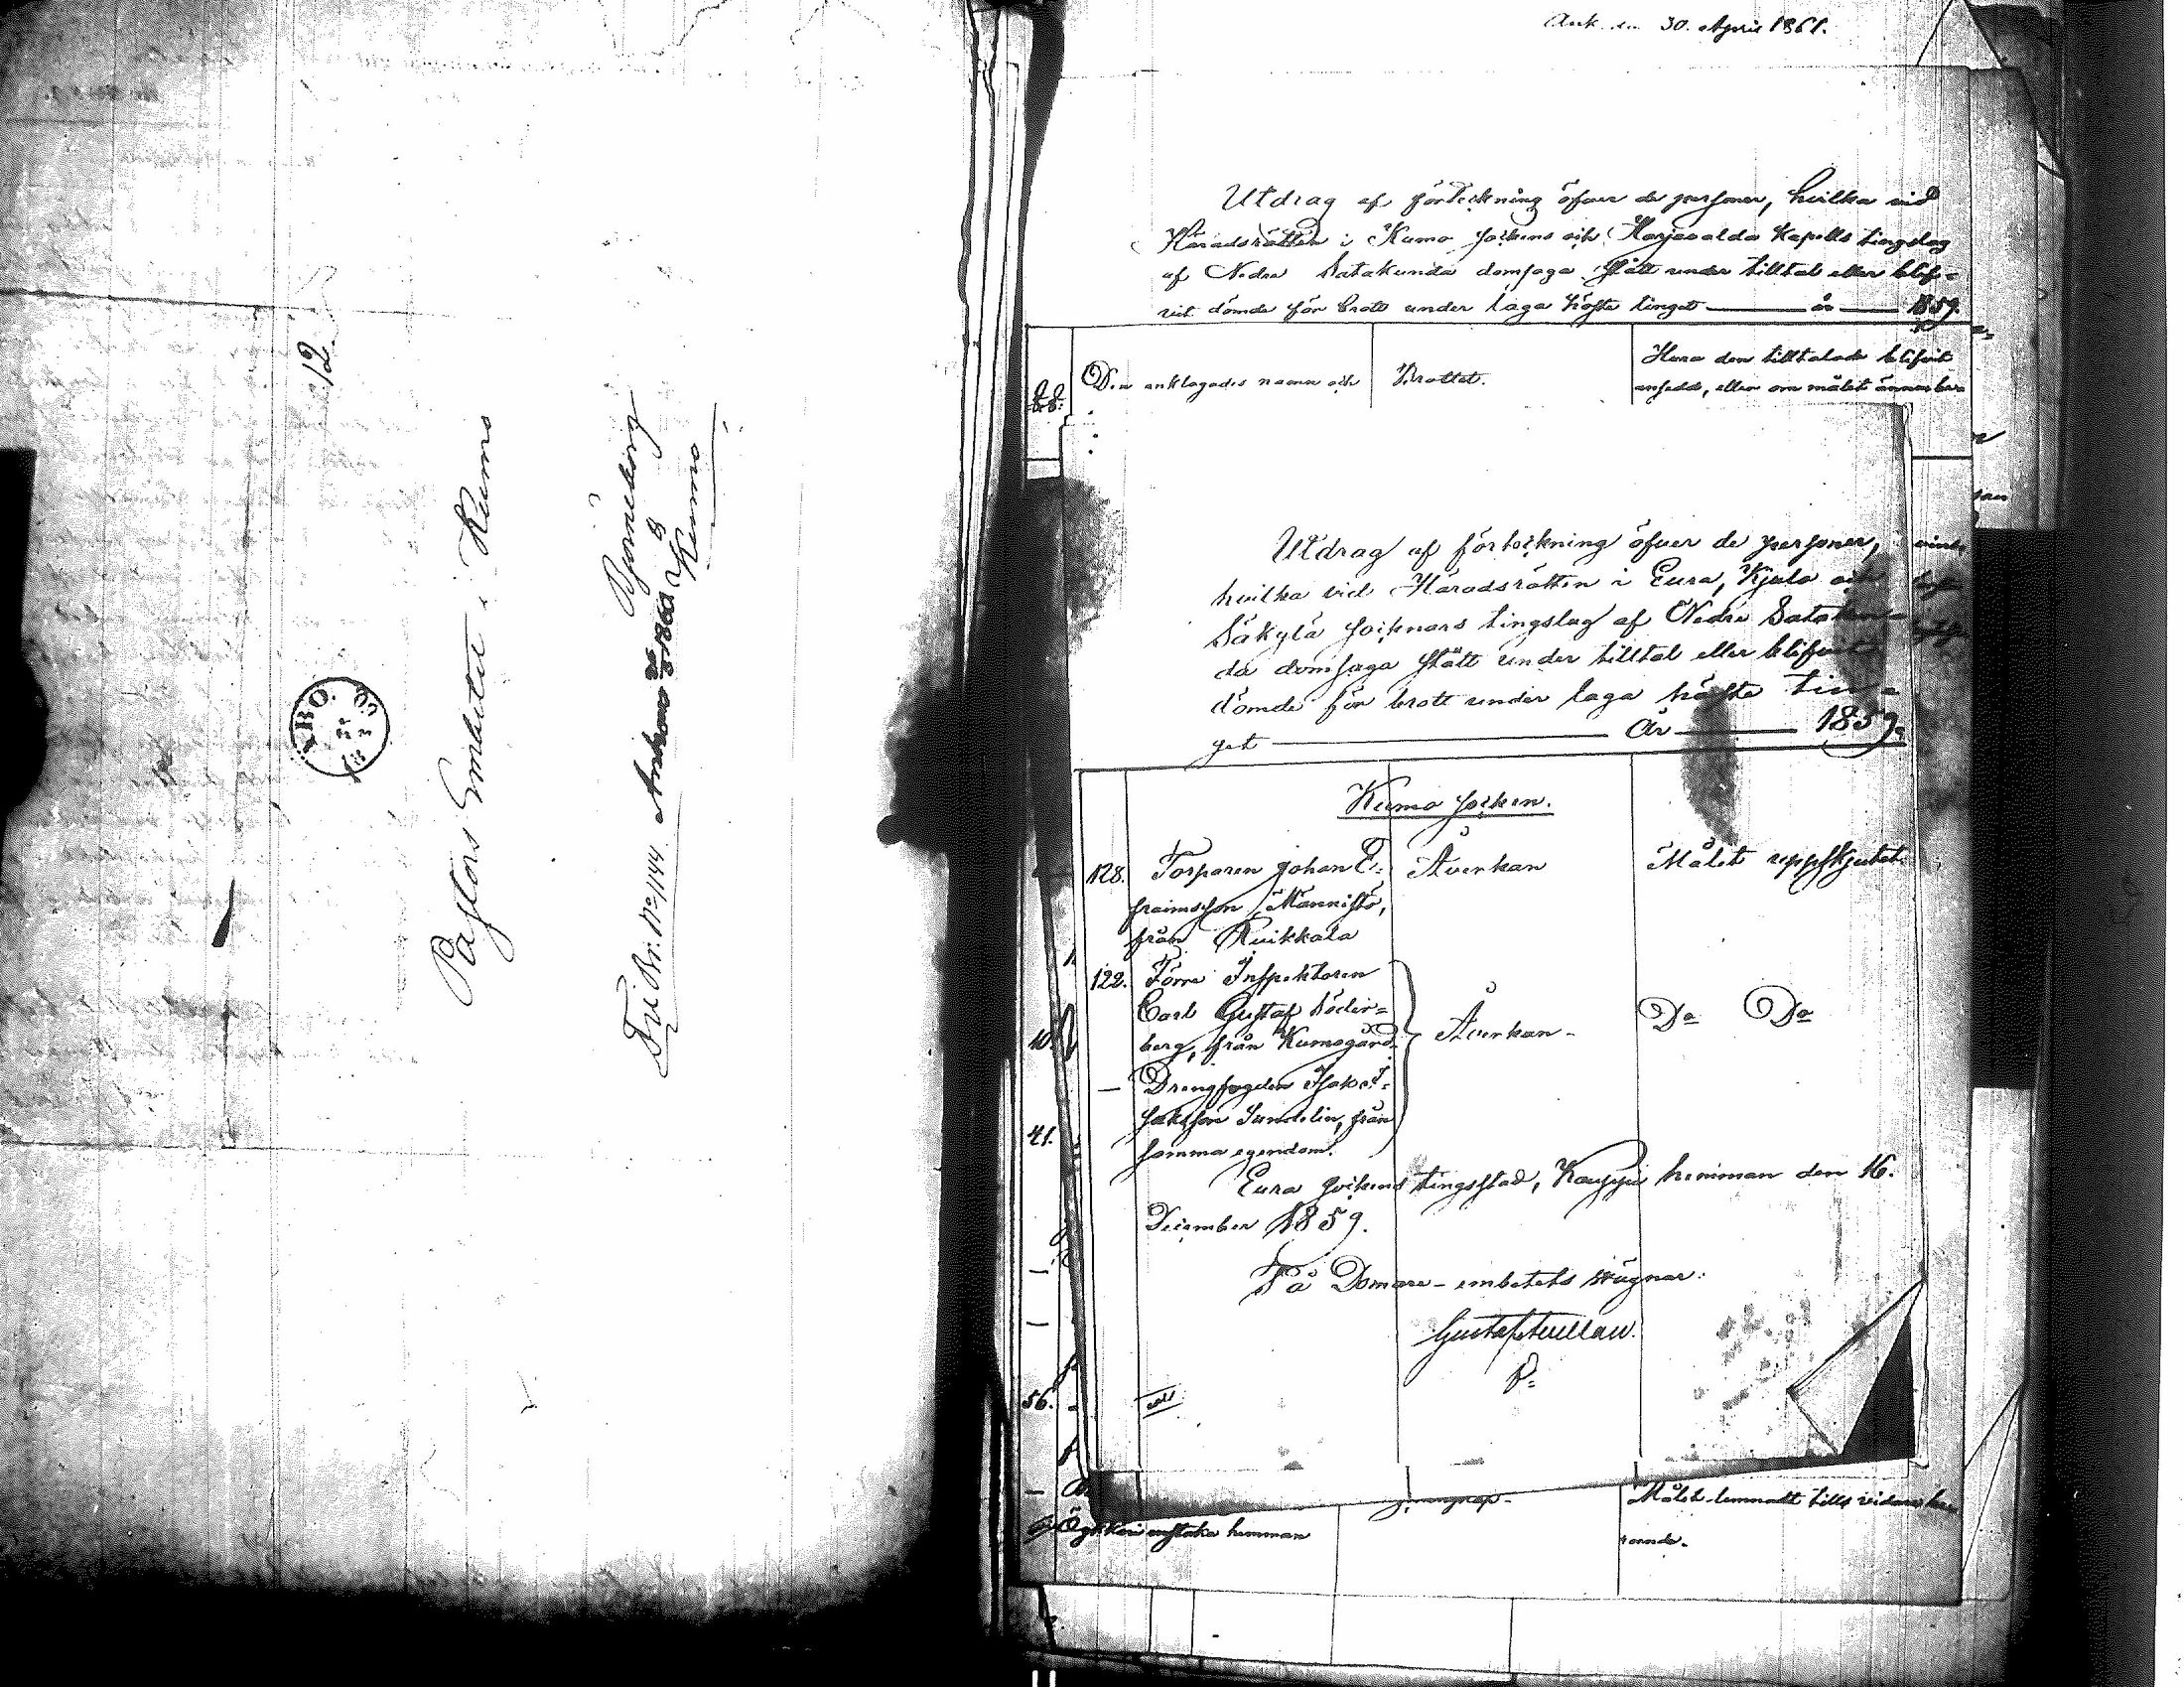 12.
ÅBO.
Pastors Embetet i Kumo
Björneborg
Kumo
Fribr. No 1144. Ankom 25/3 1860
Ank. den 30. April 1861.
Utdrag af förteckning öfver de personer, hvilka vid
Häradsrätten i Kumo sockens och Harjavalda Kapells tingslag
af Nedre Satakunda domsaga stått under tilltal eller blif-
vit dömde för brott under laga höste tinget — år — 1859.
Den anklagades namn och
Brottet.
Huru den tilltalade blifvit
ansedd, eller om målet ännu bero
Utdrag af förteckning öfver de personer,
hvilka vid Häradsrätten i Eura, Kjulo och
Säkylä socknars tingslag af Nedre Satakun-
da domsaga stått under tilltal eller blifvit
dömde för brott under laga höste tin-
get — År — 1859.
Kumo socken.
128. Torparen Johan E- Åverkan Målet uppskjutet.
fraimsson Männistö,
från Kuikkala
122. Förre Inspektoren
Carl Gustaf Söder-
berg, från Kumogård. Åverkan - Do Do
— Drengfogden Isak I-
saksson Sundelin, från
samma egendom.
Eura sockens tingsstad, Kauppi hemman den 16.
December 1859.
På Domare-embetets vägnar:
10
41.
56.
Målet lemnadt tills vidare be-
roende.
enstaka hemman